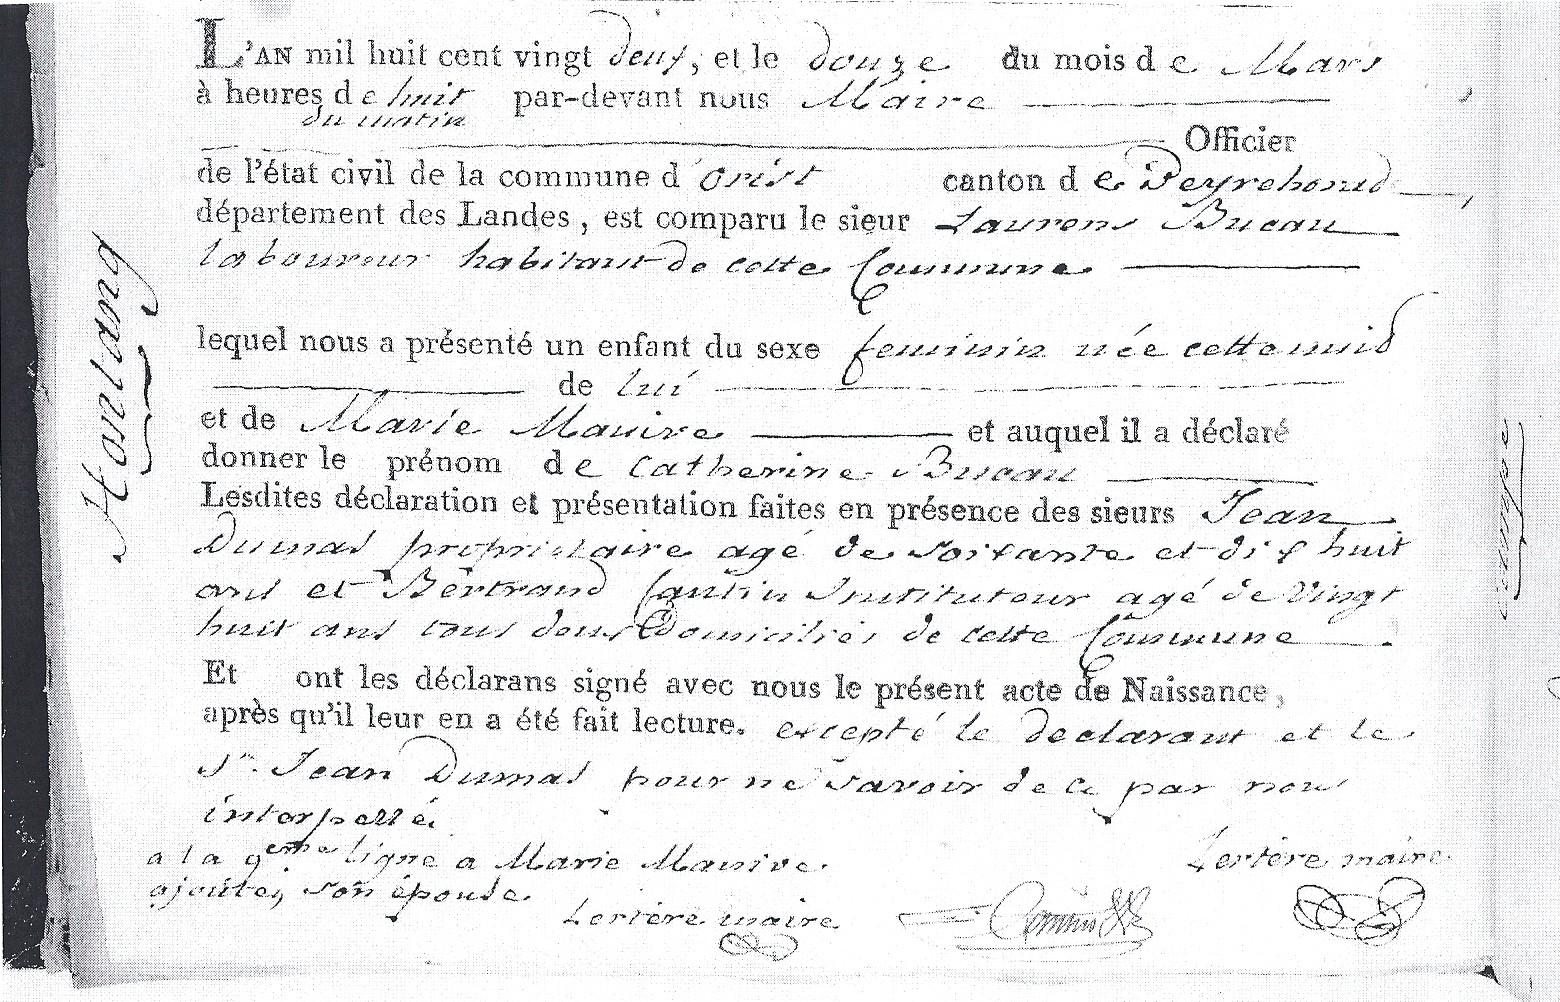 L'AN mil huit cent vingt deux, et le douze du mois de Mars
à heures de huit par-devant nous Maire
du matin
Officier
de l'état civil de la commune d'orist canton de Peyrehorade,
département des Landes, est comparu le sieur Laurens Bucau
laboureur habitant de cette Commune
lequel nous a présenté un enfant du sexe feminin née cette nuid
de lui
et de Marie Mauire et auquel il a déclaré
donner le prénom de catherine Bucau
Lesdites déclaration et présentation faites en présence des sieurs Jean
Dumas proprietaire agé de soixante et dix huit
ans et Bertrand Instituteur agé de Vingt
huit ans tous deux Domiciliés de cette Commune.
Et ont les déclarans signé avec nous le présent acte de Naissance,
après qu'il leur en a été fait lecture. excepté le declarant et le
Sr. Jean Dumas pour ne savoir de ce par nous
interpellé.
a la 9eme ligne a Marie Mauire.
ajouté, son épouse.
Lertère maire
Lertère maire.
Hontang